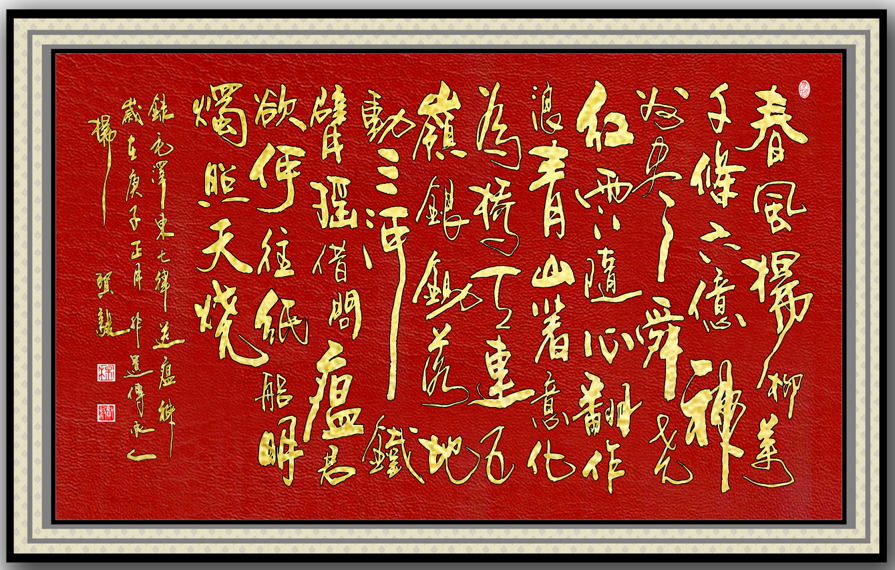 春風楊柳萬
千條六億神
州尽舜尧
红雨隨心翻作
浪青山著意化
為橋天連五
嶺銀鋤落地
動三河鐵
臂摇借問瘟君
欲何往紙船明
燭照天燒
錄毛澤東七律送瘟神
歲在庚子正月非遺傳承人
楊